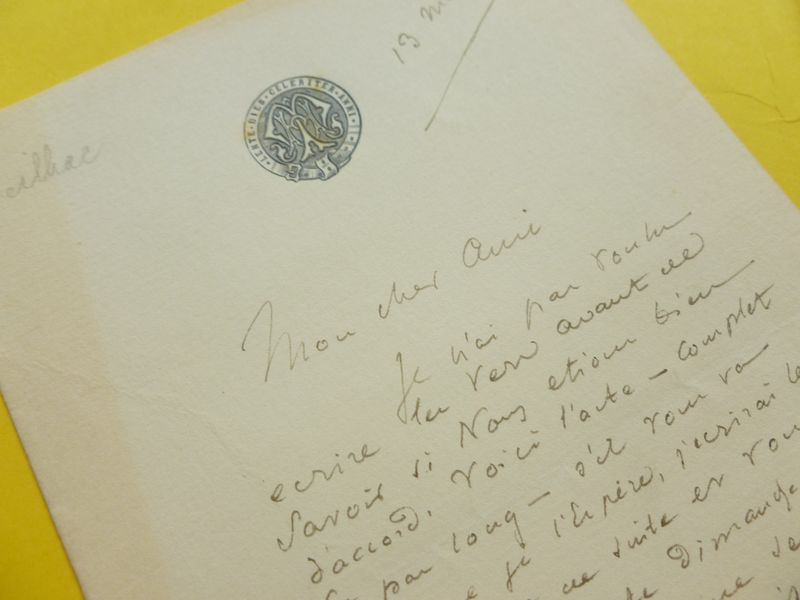 13
LENTE · DIES · CELERITER · ANNI
eilhac
Mon cher Ami
Je n'ai pas voulu
écrire les vers avant de
savoir si Nous étions bien
d'accord. Voici l'acte – complet
pas long – s'il vous va
je l'Espère, j'écrirai le
de suite et vou
Dimanche